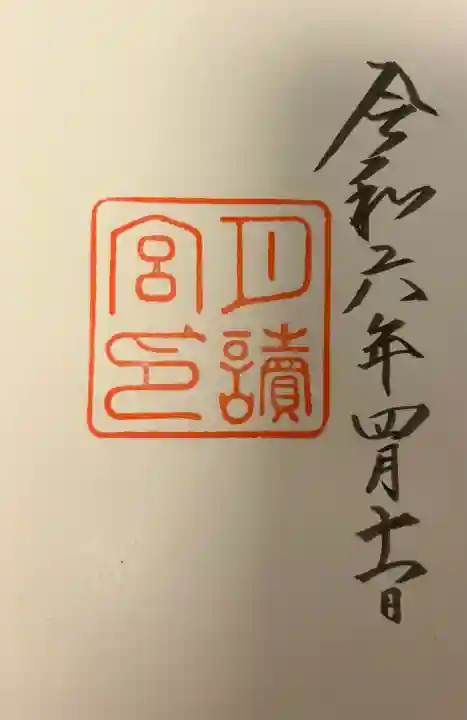 令和六年四月十一日
月讀
宮印